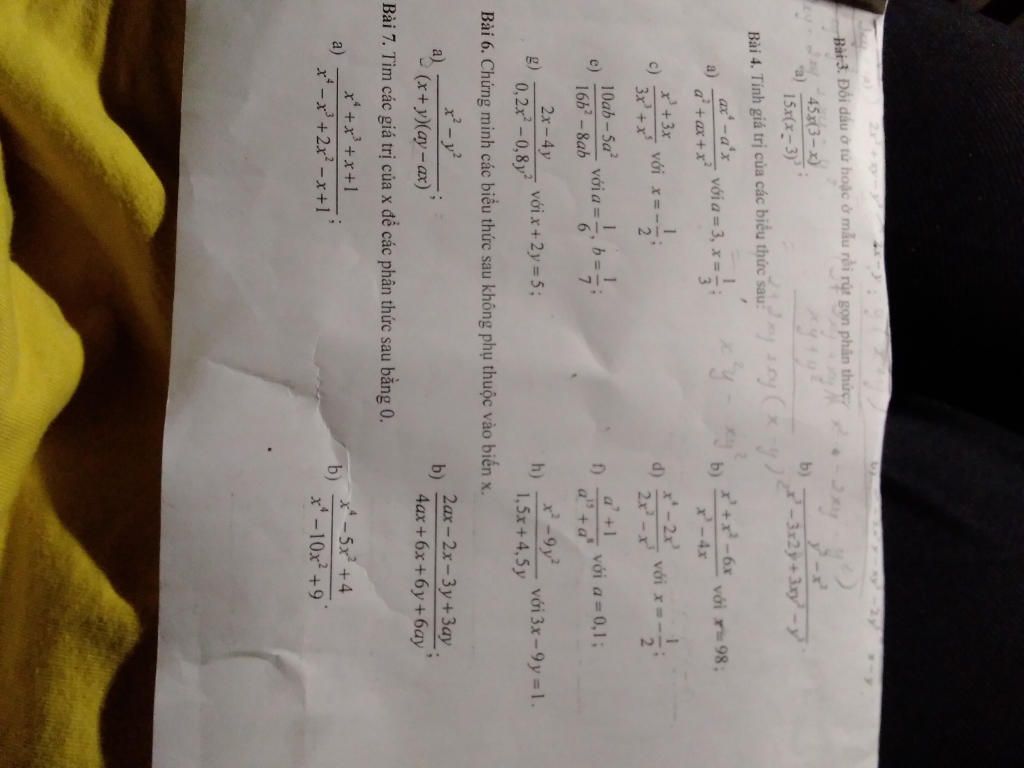 Bài 3. Đổi dấu ở tử hoặc ở mẫu rồi rút gọn phân thức:
a) \frac{45x(3-x)}{15x(x-3)^3}; b) \frac{y^2-x^2}{x^3-3x^2y+3xy^2-y^3}.
Bài 4. Tính giá trị của các biểu thức sau:
a) \frac{ax^4-a^4x}{a^2+ax+x^2} với a=3, x=\frac{1}{3}; b) \frac{x^3+x^2-6x}{x^3-4x} với x=98;
c) \frac{x^3+3x}{3x^3+x^5} với x=-\frac{1}{2}; d) \frac{x^4-2x^3}{2x^2-x^3} với x=-\frac{1}{2};
e) \frac{10ab-5a^2}{16b^2-8ab} với a=\frac{1}{6}, b=\frac{1}{7}; f) \frac{a^7+1}{a^{15}+a^8} với a=0,1;
g) \frac{2x-4y}{0,2x^2-0,8y^2} với x+2y=5; h) \frac{x^2-9y^2}{1,5x+4,5y} với 3x-9y=1.
Bài 6. Chứng minh các biểu thức sau không phụ thuộc vào biến x.
a) \frac{x^2-y^2}{(x+y)(ay-ax)}; b) \frac{2ax-2x-3y+3ay}{4ax+6x+6y+6ay};
Bài 7. Tìm các giá trị của x để các phân thức sau bằng 0.
a) \frac{x^4+x^3+x+1}{x^4-x^3+2x^2-x+1}; b) \frac{x^4-5x^2+4}{x^4-10x^2+9}.